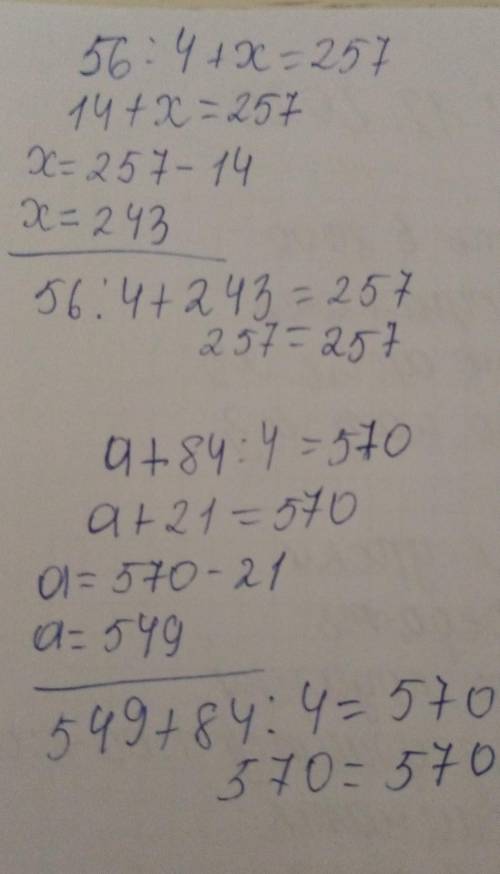 56 : 4 + x = 257
14 + x = 257
x = 257 - 14
x = 243
56 : 4 + 243 = 257
257 = 257
a + 84 : 4 = 570
a + 21 = 570
a = 570 - 21
a = 549
549 + 84 : 4 = 570
570 = 570